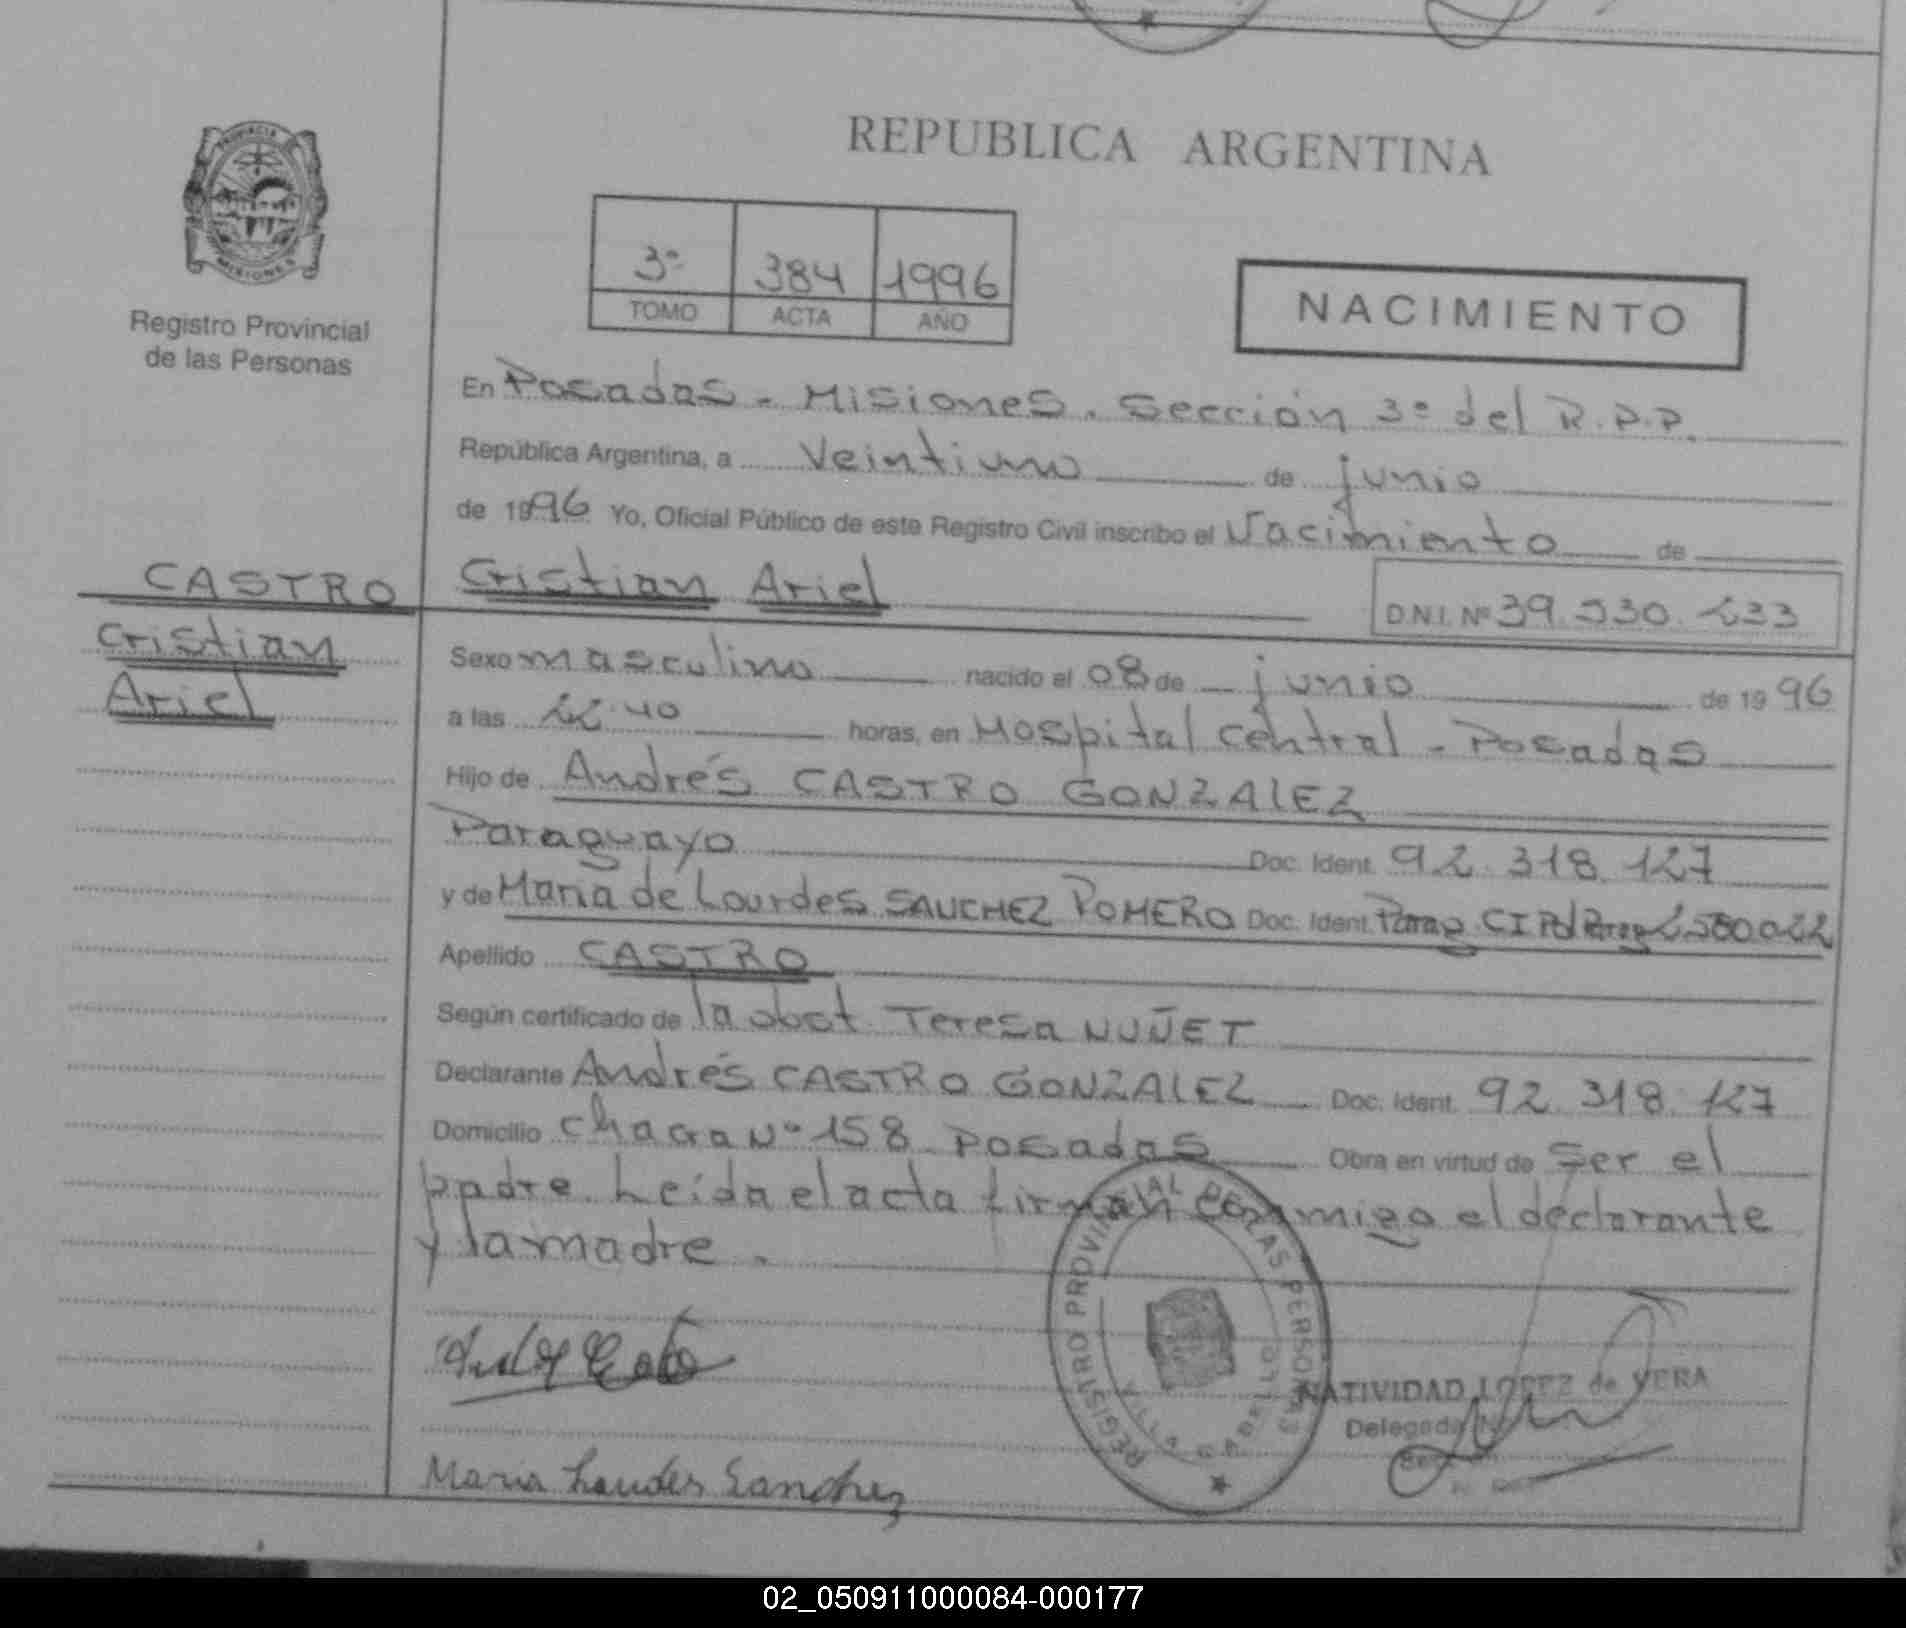 REPUBLICA ARGENTINA
PROVINCIA
MISIONES
Registro Provincial
de las Personas
3º 384 1996
TOMO ACTA AÑO
NACIMIENTO
En Posadas - Misiones. Sección 3º del R.P.P.
República Argentina, a Veintiuno de junio
de 1996 Yo, Oficial Público de este Registro Civil inscribo el Nacimiento de
CASTRO Cristian Ariel
D.N.I. Nº 39.530.233
Cristian
Ariel
Sexo masculino nacido el 08 de junio de 1996
a las 22.40 horas, en Hospital Central - Posadas
Hijo de Andrés CASTRO GONZALEZ
Paraguayo Doc. Ident. 92.318.127
y de Maria de Lourdes SANCHEZ ROMERO Doc. Ident. Parag CI Pol Parag
Apellido CASTRO
Según certificado de la obst. Teresa NUÑET
Declarante Andrés CASTRO GONZALEZ Doc. Ident. 92.318.127
Domicilio Chacra Nº 158 Posadas Obra en virtud de Ser el
padre. Leída el acta firman conmigo el declarante
y la madre.
REGISTRO PROVINCIAL DE LAS PERSONAS
VILLA CABELLO
NATIVIDAD LOPEZ de VERA
Delegada
Maria Lourdes Sanchez
02_050911000084-000177